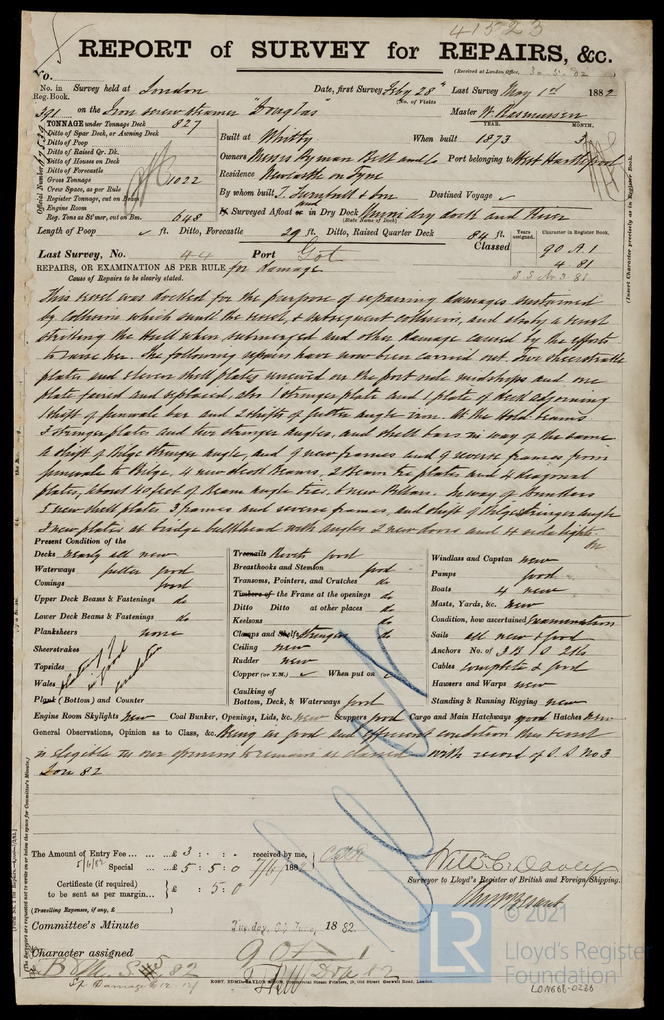 41523
REPORT of SURVEY for REPAIRS, &c.
(Received at London Office,
No. in Reg. Book. Survey held at London Date, first Survey Feby 28th Last Survey May 1st 1882
(No. of Visits
391 on the Iron screw steamer "Douglas" Master W. Rasmussen
TONNAGE under Tonnage Deck 827
YEAR. MONTH.
Ditto of Spar Deck, or Awning Deck
Ditto of Poop
Built at Whitby When built 1873 3
Ditto of Raised Qr. Dk.
Ditto of Houses on Deck
Owners Messrs Pyman Bell and Co Port belonging to West Hartlepool
Ditto of Forecastle
Gross Tonnage 1022
Residence Newcastle on Tyne
Crew Space, as per Rule
Register Tonnage, cut on Beam
By whom built T. Turnbull & Son Destined Voyage
Engine Room
Reg. Tons as St'mer, cut on Bm. 648
If Surveyed Afloat or in Dry Dock dry dock and River
(State Name of Dock)
Length of Poop ft. Ditto, Forecastle 29 ft. Ditto, Raised Quarter Deck 84 ft.
Official Number
Last Survey, No. 44 Port Got
Classed
Years assigned.
Character in Register Book.
90 A.1
4.81
S S No 3 81
(Insert Character precisely as in Register Book.)
REPAIRS, OR EXAMINATION AS PER RULE for damage
Cause of Repairs to be clearly stated.
This vessel was docked for the purpose of repairing damages sustained
by collision which sunk the vessel, & subsequent collisions, and also by a vessel
striking the Hull when submerged and other damage caused by the efforts
to raise her. The following repairs have now been carried out. Five sheerstrake
plates and eleven shell plates renewed on the port side midships and one
plate faired and replaced, also 1 stringer plate and 1 plate of deck adjoining
1 shift of gunwale bar and 2 shifts of gutter angle iron. At the Hold beams
3 stringer plates and two stringer angles, and shell bars in way of the same
a shift of bilge stringer angle, and 9 new frames and 9 reverse frames from
gunwale to bilge, 4 new deck beams, 2 beam tie plates and 4 diagonal
plates, about 40 feet of beam angle Iron, 6 new Pillars. In way of bunkers
5 new shell plates 3 frames and reverse frames, and shift of bilge stringer angle
3 new plates at bridge bulkhead with angles 2 new doors and 4 sidelights
on
Present Condition of the
Decks nearly all new
Waterways gutter good
Comings good
Upper Deck Beams & Fastenings do
Lower Deck Beams & Fastenings do
Planksheers none
Sheerstrakes
Topsides
Wales
Plank (Bottom) and Counter
plating
in good
condition
Treenails Rivets good
Breasthooks and Stemson good
Transoms, Pointers, and Crutches do
Timbers of the Frame at the openings do
Ditto Ditto at other places do
Keelsons do
Clamps and Shelfs Stringers do
Ceiling new
Rudder new
Copper (or Y.M.) When put on
Caulking of
Bottom, Deck, & Waterways good
Windlass and Capstan new
Pumps good
Boats 4 new
Masts, Yards, &c. new
Condition, how ascertained Examination
Sails all new & good
Anchors No. of 3 B 1 S 2 K
Cables complete & good
Hawsers and Warps new
Standing & Running Rigging new
Engine Room Skylights new Coal Bunker, Openings, Lids, &c. new Scuppers good Cargo and Main Hatchways good Hatches new
General Observations, Opinion as to Class, &c. Being in good and efficient condition this vessel
is eligible in our opinion to remain as classed with record of S.S No 3
Lon 82
The Amount of Entry Fee £ 3 : - : received by me,
5/6/82 Special £ 5 : 5 : 0 7/6/1882
Certificate (if required)
to be sent as per margin £ : 5 : 0
(Travelling Expenses, if any, £ )
Surveyor to Lloyd's Register of British and Foreign Shipping.
Committee's Minute Tuesday, 6th June, 1882.
Character assigned 90 A 1
S.S #3 5 82
ROBT. EDMD. TAYLOR & SON, Commercial Steam Printers, 19, Old Street Goswell Road, London.
LR
© 2021
Lloyd's Register
Foundation
LON668-0226